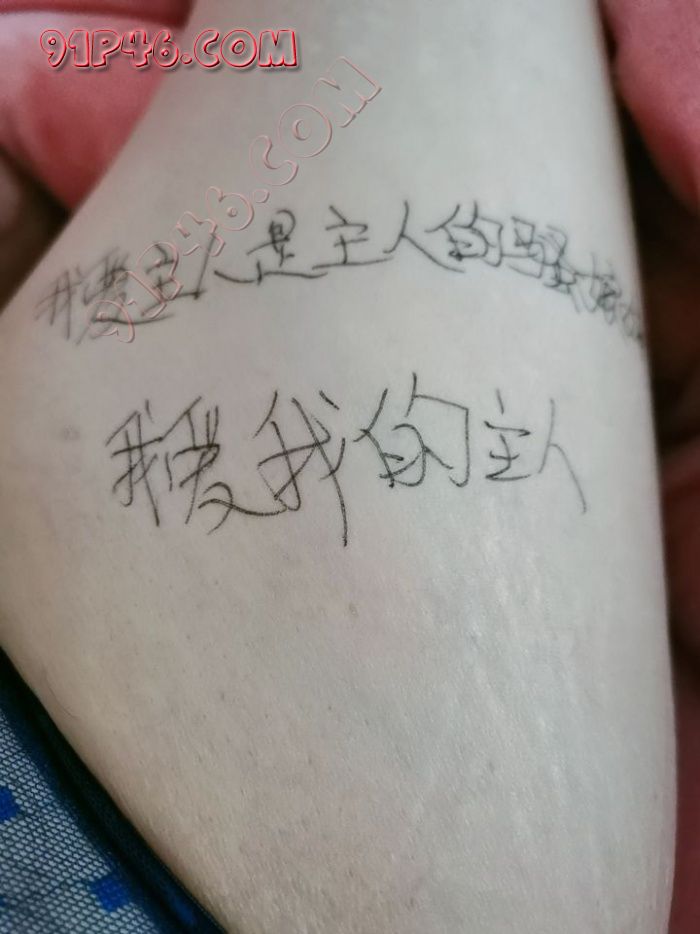 91P46.COM
91P46.COM
我爱主人是主人的骚
我爱我的主人